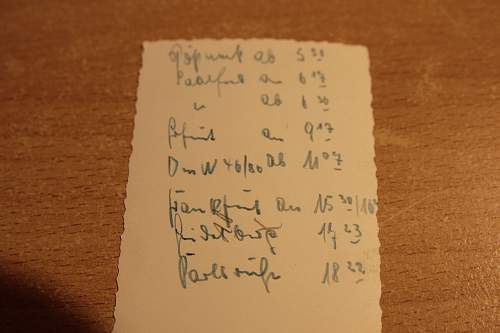 ab 5 30
Saalfeld an 6 17
" ab 6 30
Erfurt an 9 17
DmW 46/80 ab 11 07
Frankfurt an 15 30/16
Heidelberg 17 23
Karlsruhe 18 22